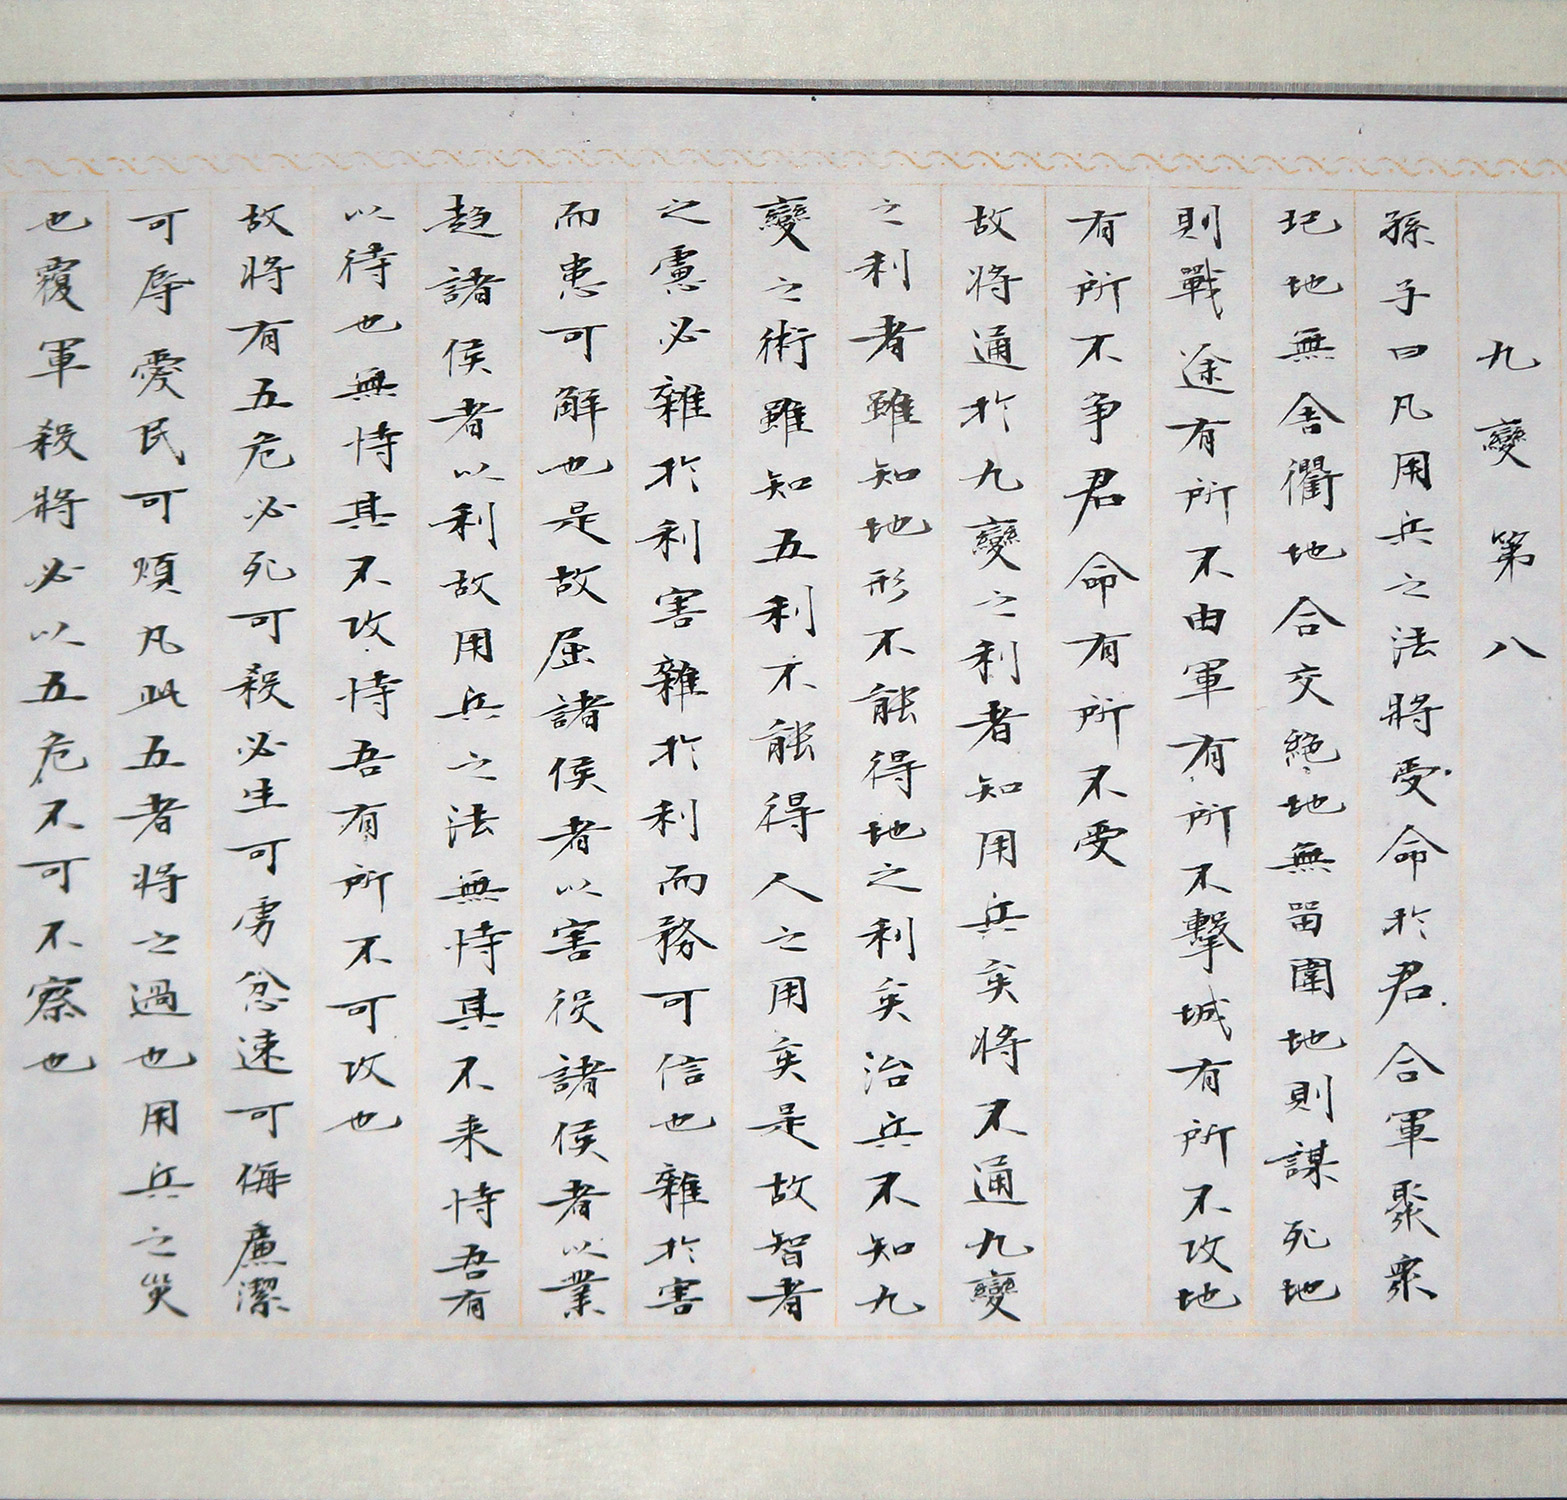 九變第八
孫子曰凡用兵之法將受命於君合軍聚衆
圮地無舍衢地合交絕地無留圍地則謀死地
則戰途有所不由軍有所不擊城有所不攻地
有所不争君命有所不受
故將通於九變之利者知用兵矣將不通九變
之利者雖知地形不能得地之利矣治兵不知九
變之術雖知五利不能得人之用矣是故智者
之慮必雜於利害雜於利而務可信也雜於害
而患可解也是故屈諸侯者以害役諸侯者以業
趋諸侯者以利故用兵之法無恃其不来恃吾有
以待也無恃其不攻恃吾有所不可攻也
故將有五危必死可殺必生可虜忿速可侮廉潔
可辱愛民可煩凡此五者將之過也用兵之災
也覆軍殺將必以五危不可不察也